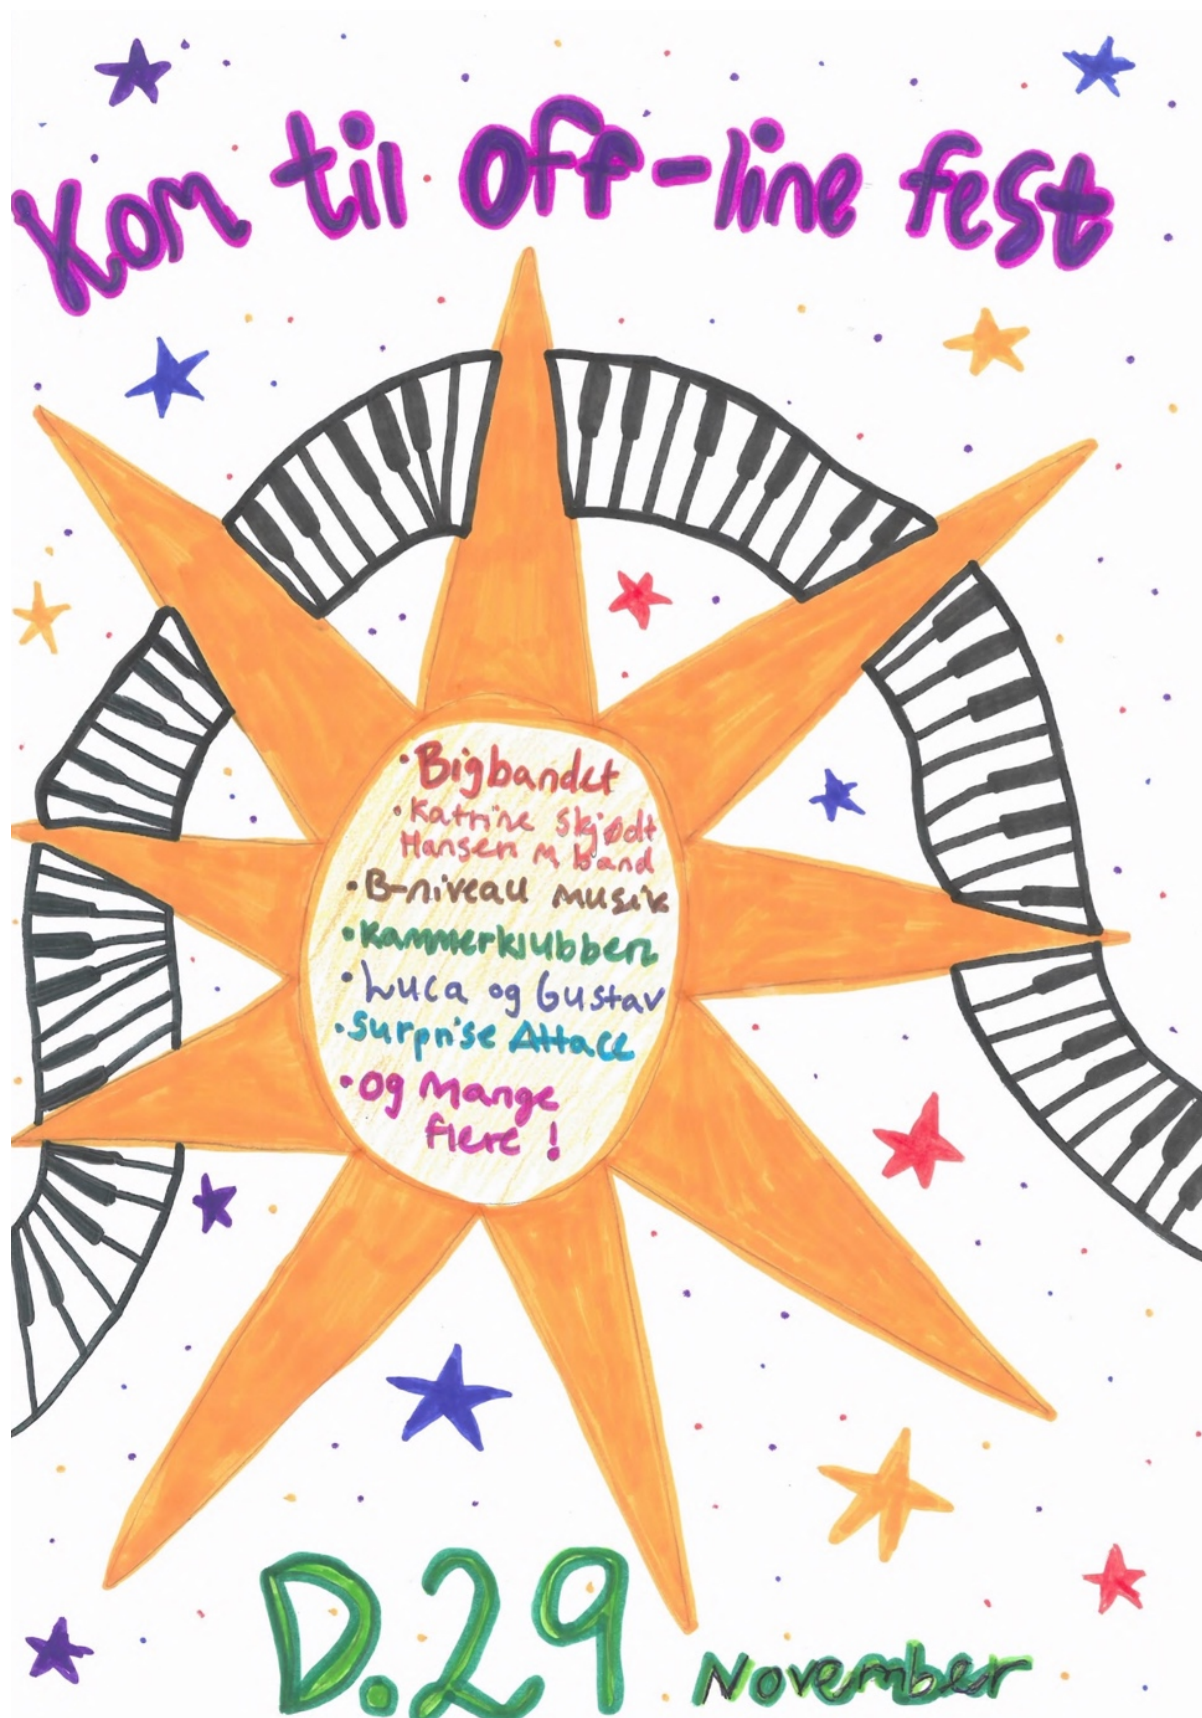 Kom til Off-line fest
• Bigbandet
• Katrine Skjødt
Hansen m band
• B-niveau musik
• Kammerklubben
• Luca og Gustav
• Surprise Attacc
• Og Mange
flere !
D.29 November